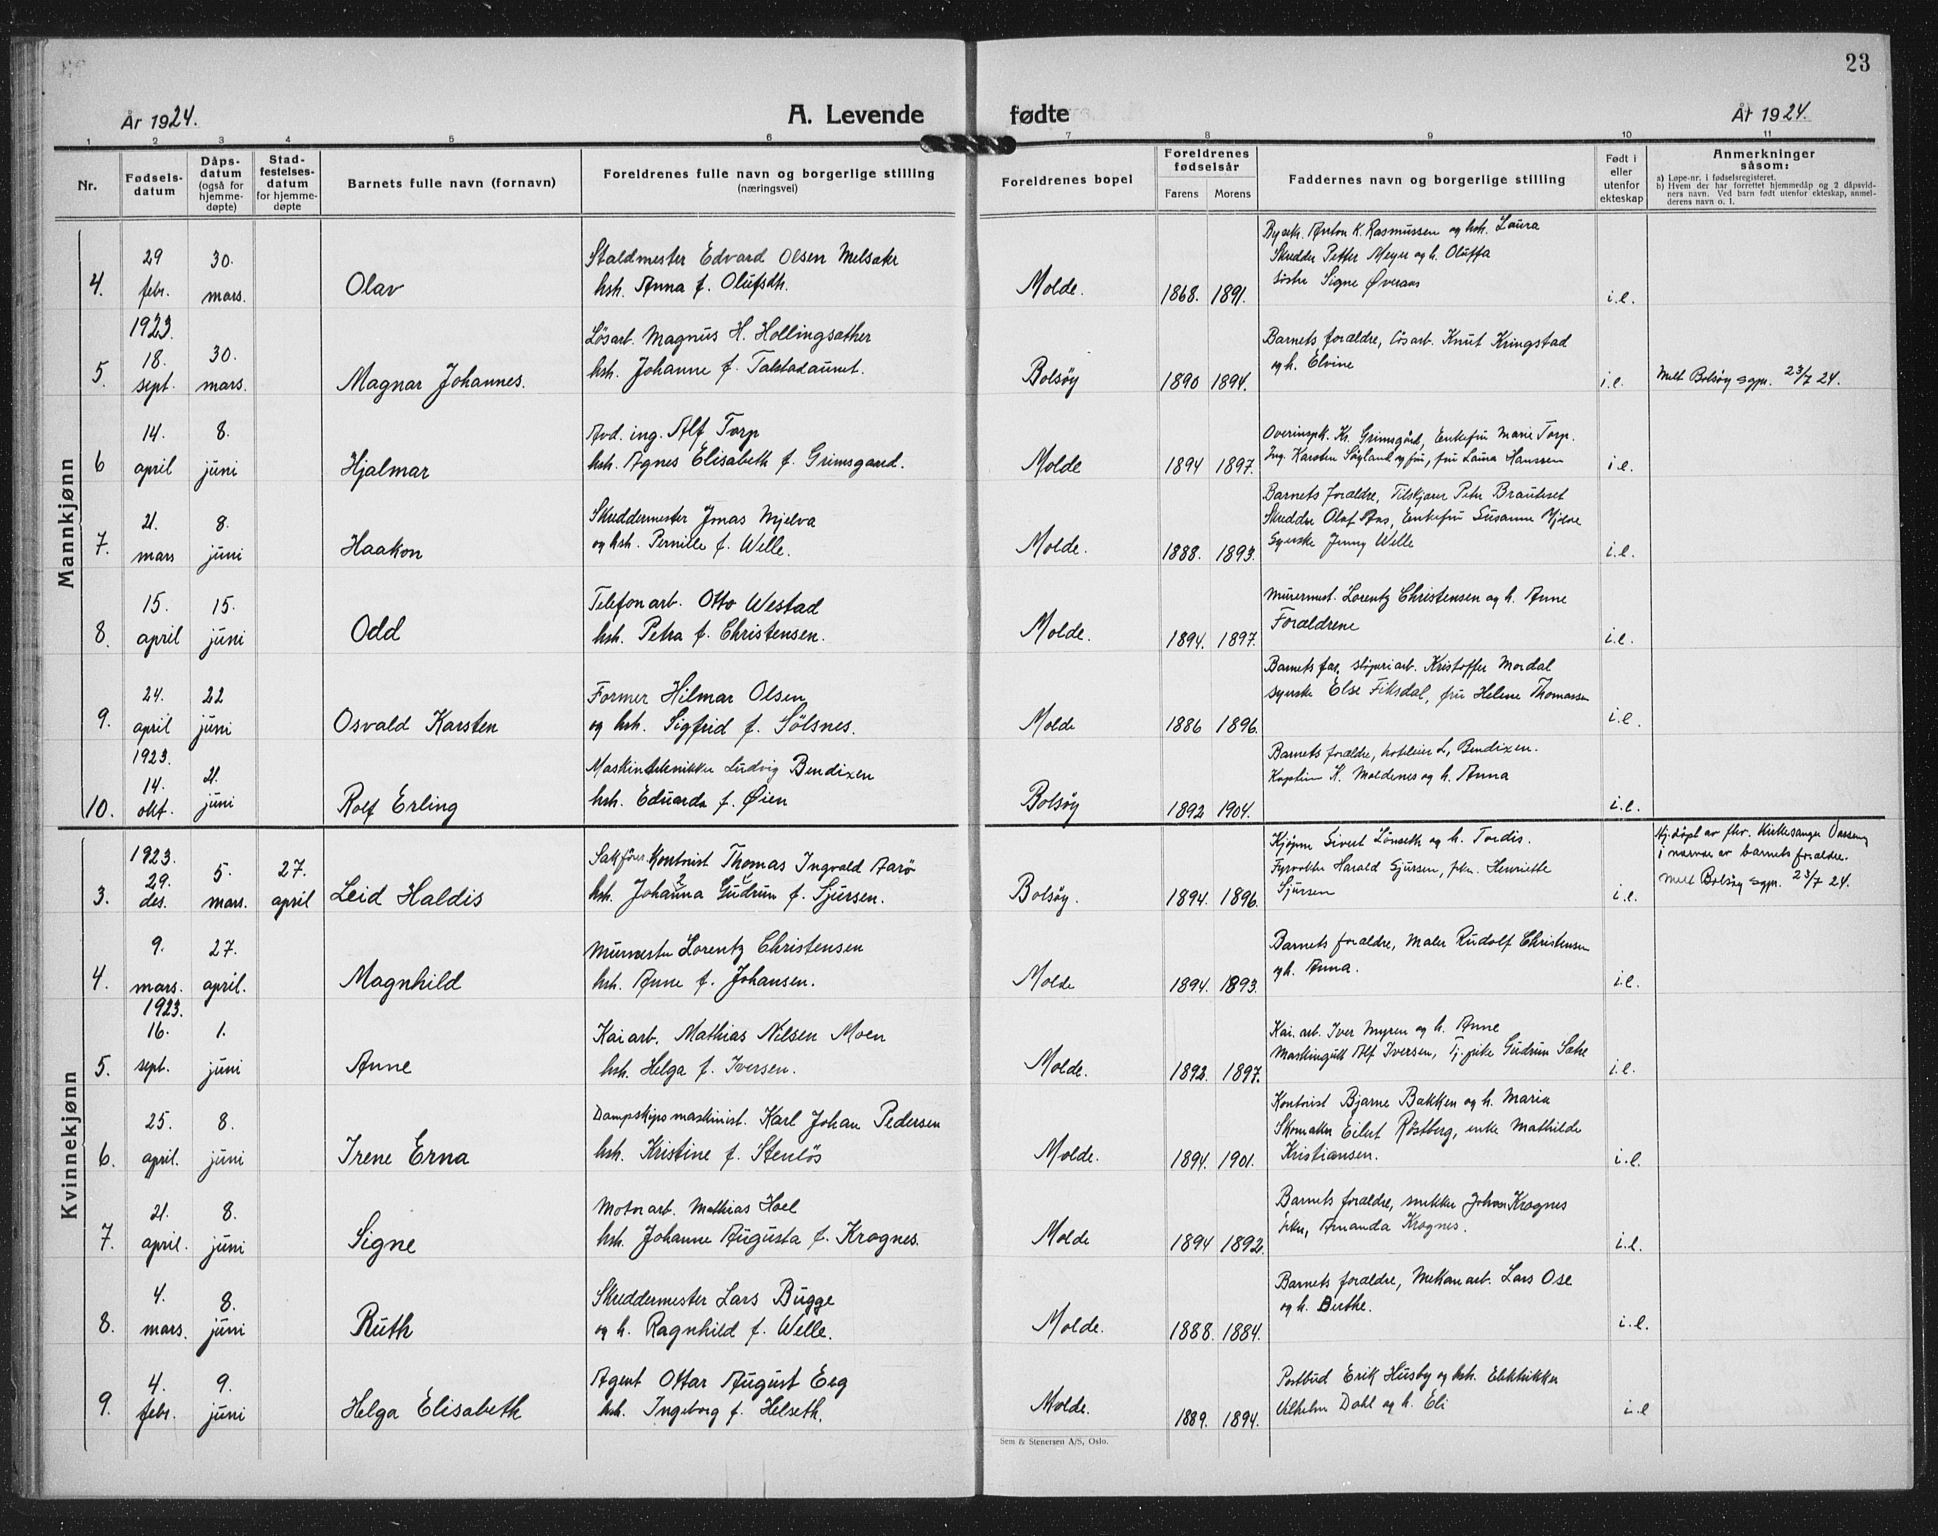 23
År 1924. A. Levende fødte År 1924.
1 2 3 4 5 6 7 8 9 10 11
Nr.
Fødsels-
datum
Dåps-
datum
(også for
hjemme-
døpte)
Stad-
festelses-
datum
for hjemme-
døpte
Barnets fulle navn (fornavn)
Foreldrenes fulle navn og borgerlige stilling
(næringsvei)
Foreldrenes bopel
Foreldrenes
fødselsår
Farens Morens
Faddernes navn og borgerlige stilling
Født i
eller
utenfor
ekteskap
Anmerkninger
såsom:
a) Løpe-nr. i fødselsregisteret.
b) Hvem der har forrettet hjemmedåp og 2 dåpsvid-
ners navn. Ved barn født utenfor ekteskap, anmel-
derens navn o. l.
Mannkjønn
4. 29 febr. 30. mars. Olav
Staldmester Edvard Olsen Melsæter
hsh. Anna f. Olufsdh.
Molde. 1868. 1891.
Anton K. Rasmussen og hsh. Laura
Skredder Petter Meyer og h. Oluffa
Signe Øveraas
i.e.
5. 1923. 18. sept. 30. mars. Magnar Johannes.
Løsarb. Magnus H. Hollingsæther
hsh. Johanne f. Talstadaunet.
Bolsøy 1890 1894.
Barnets forældre, Løsarb. Knut Kringstad
og h. Elvine
i.e.
Melt Bolsøy sgpr. 23/7 24.
6 14. april 8. juni Hjalmar
Avd. ing. Alf Torp
hsh. Agnes Elisabeth f. Grimsgaard.
Molde 1894 1897.
Overinspk. Kr. Grimsgård, Enkefru Marie Torp.
Ing. Karsten Søgland og fru, fru Laura Hanssen
i.e.
7. 21. mars 8. juni Haakon
Skreddermester Jonas Mjelva
og hsh. Pernille f. Welle.
Molde. 1888. 1893.
Barnets forældre, Tilskjærer Petr Brauteset
Skredder Olaf Aas, Enkefru Susanne Mjelve
Syerske Jenny Welle
i.e.
8. 15. april 15. juni Odd
Telefonarb. Otto Westad
hsh. Petra f. Christensen.
Molde. 1894. 1897.
Murermest. Lorentz Christensen og h. Anne
Forældrene
i.e.
9. 24. april 22 juni Osvald Karsten
Former Hilmar Olsen
og hsh. Sigfrid f. Sølsnes.
Molde 1886 1896.
Barnets far, sliperiarb. Kristoffer Mordal
syerske Else Fiksdal, fru Helene Thomassen
i.e.
10. 1923. 14. okt. 21. juni Rolf Erling
Maskintekniker Ludvig Bendixen
hsh. Eduarda f. Øien
Bolsøy 1892 1904.
Barnets forældre, hoteleier L. Bendixen.
Kaptein K. Moldenes og h. Anna
i.e.
Kvinnekjønn
3. 1923. 29. des. 5. mars. 27. april Leid Haldis
Sakfører Kontorist Thomas Ingvald Aarø
hsh. Johanna Gudrun f. Sjursen.
Bolsøy. 1894. 1896.
Kjøpm Sivert Lønseth og h. Tordis.
Fyrvokter Harald Sjursen, frkn. Henriette
Sjursen
i.e.
Hj.døpt av fhv. Kirkesanger
i nærvær av barnets forældre.
Melt Bolsøy sgpr. 23/7 24.
4. 9. mars. 27. april. Magnhild
Murmester Lorentz Christensen
hsh. Anne f. Johansen.
Molde 1894. 1893.
Barnets forældre, Maler Rudolf Christensen
og h. Anna.
i.e.
5. 1923. 16. sept. 1. juni Anne
Kaiarb. Mathias Nilsen Moen
hsh. Helga f. Iversen.
Molde. 1892. 1897.
Kai. arb. Iver Myren og h. Anne
Maskingutt Alf Iversen, Tj.pike Gudrun Sæke
i.e.
6. 25. april. 8. juni Irene Erna
Dampskipsmaskinist. Karl Johan Pedersen
hsh. Kristine f. Stenløs
Molde. 1894. 1901.
Kontorist Bjarne Bakken og h. Maria
Skomaker Eilert Røstberg, enke Mathilde
Kristiansen.
i.e.
7. 21. april. 8. juni Signe
Motorarb. Mathias Hoel
hsh. Johanne Augusta f. Krognes.
Molde 1894 1892.
Barnets forældre, snekker Johan Krognes
frkn, Amanda Krognes.
i.e.
8. 4. mars. 8. juni Ruth
Skreddermester Lars Bugge
og h. Ragnhild f. Welle.
Molde. 1888. 1884.
Barnets forældre, Mekan arb. Lars Ose
og h. Berthe.
i.e.
9. 4. febr. 9. juni Helga Elisabeth
Agent Ottar August Eeg
hsh. Ingeborg f. Helseth.
Molde. 1889. 1894.
Postbud Erik Husby og hsh. Elektrikker
Vilhelm Dahl og h. Eli
i.e
Sem & Stenersen A/S, Oslo.